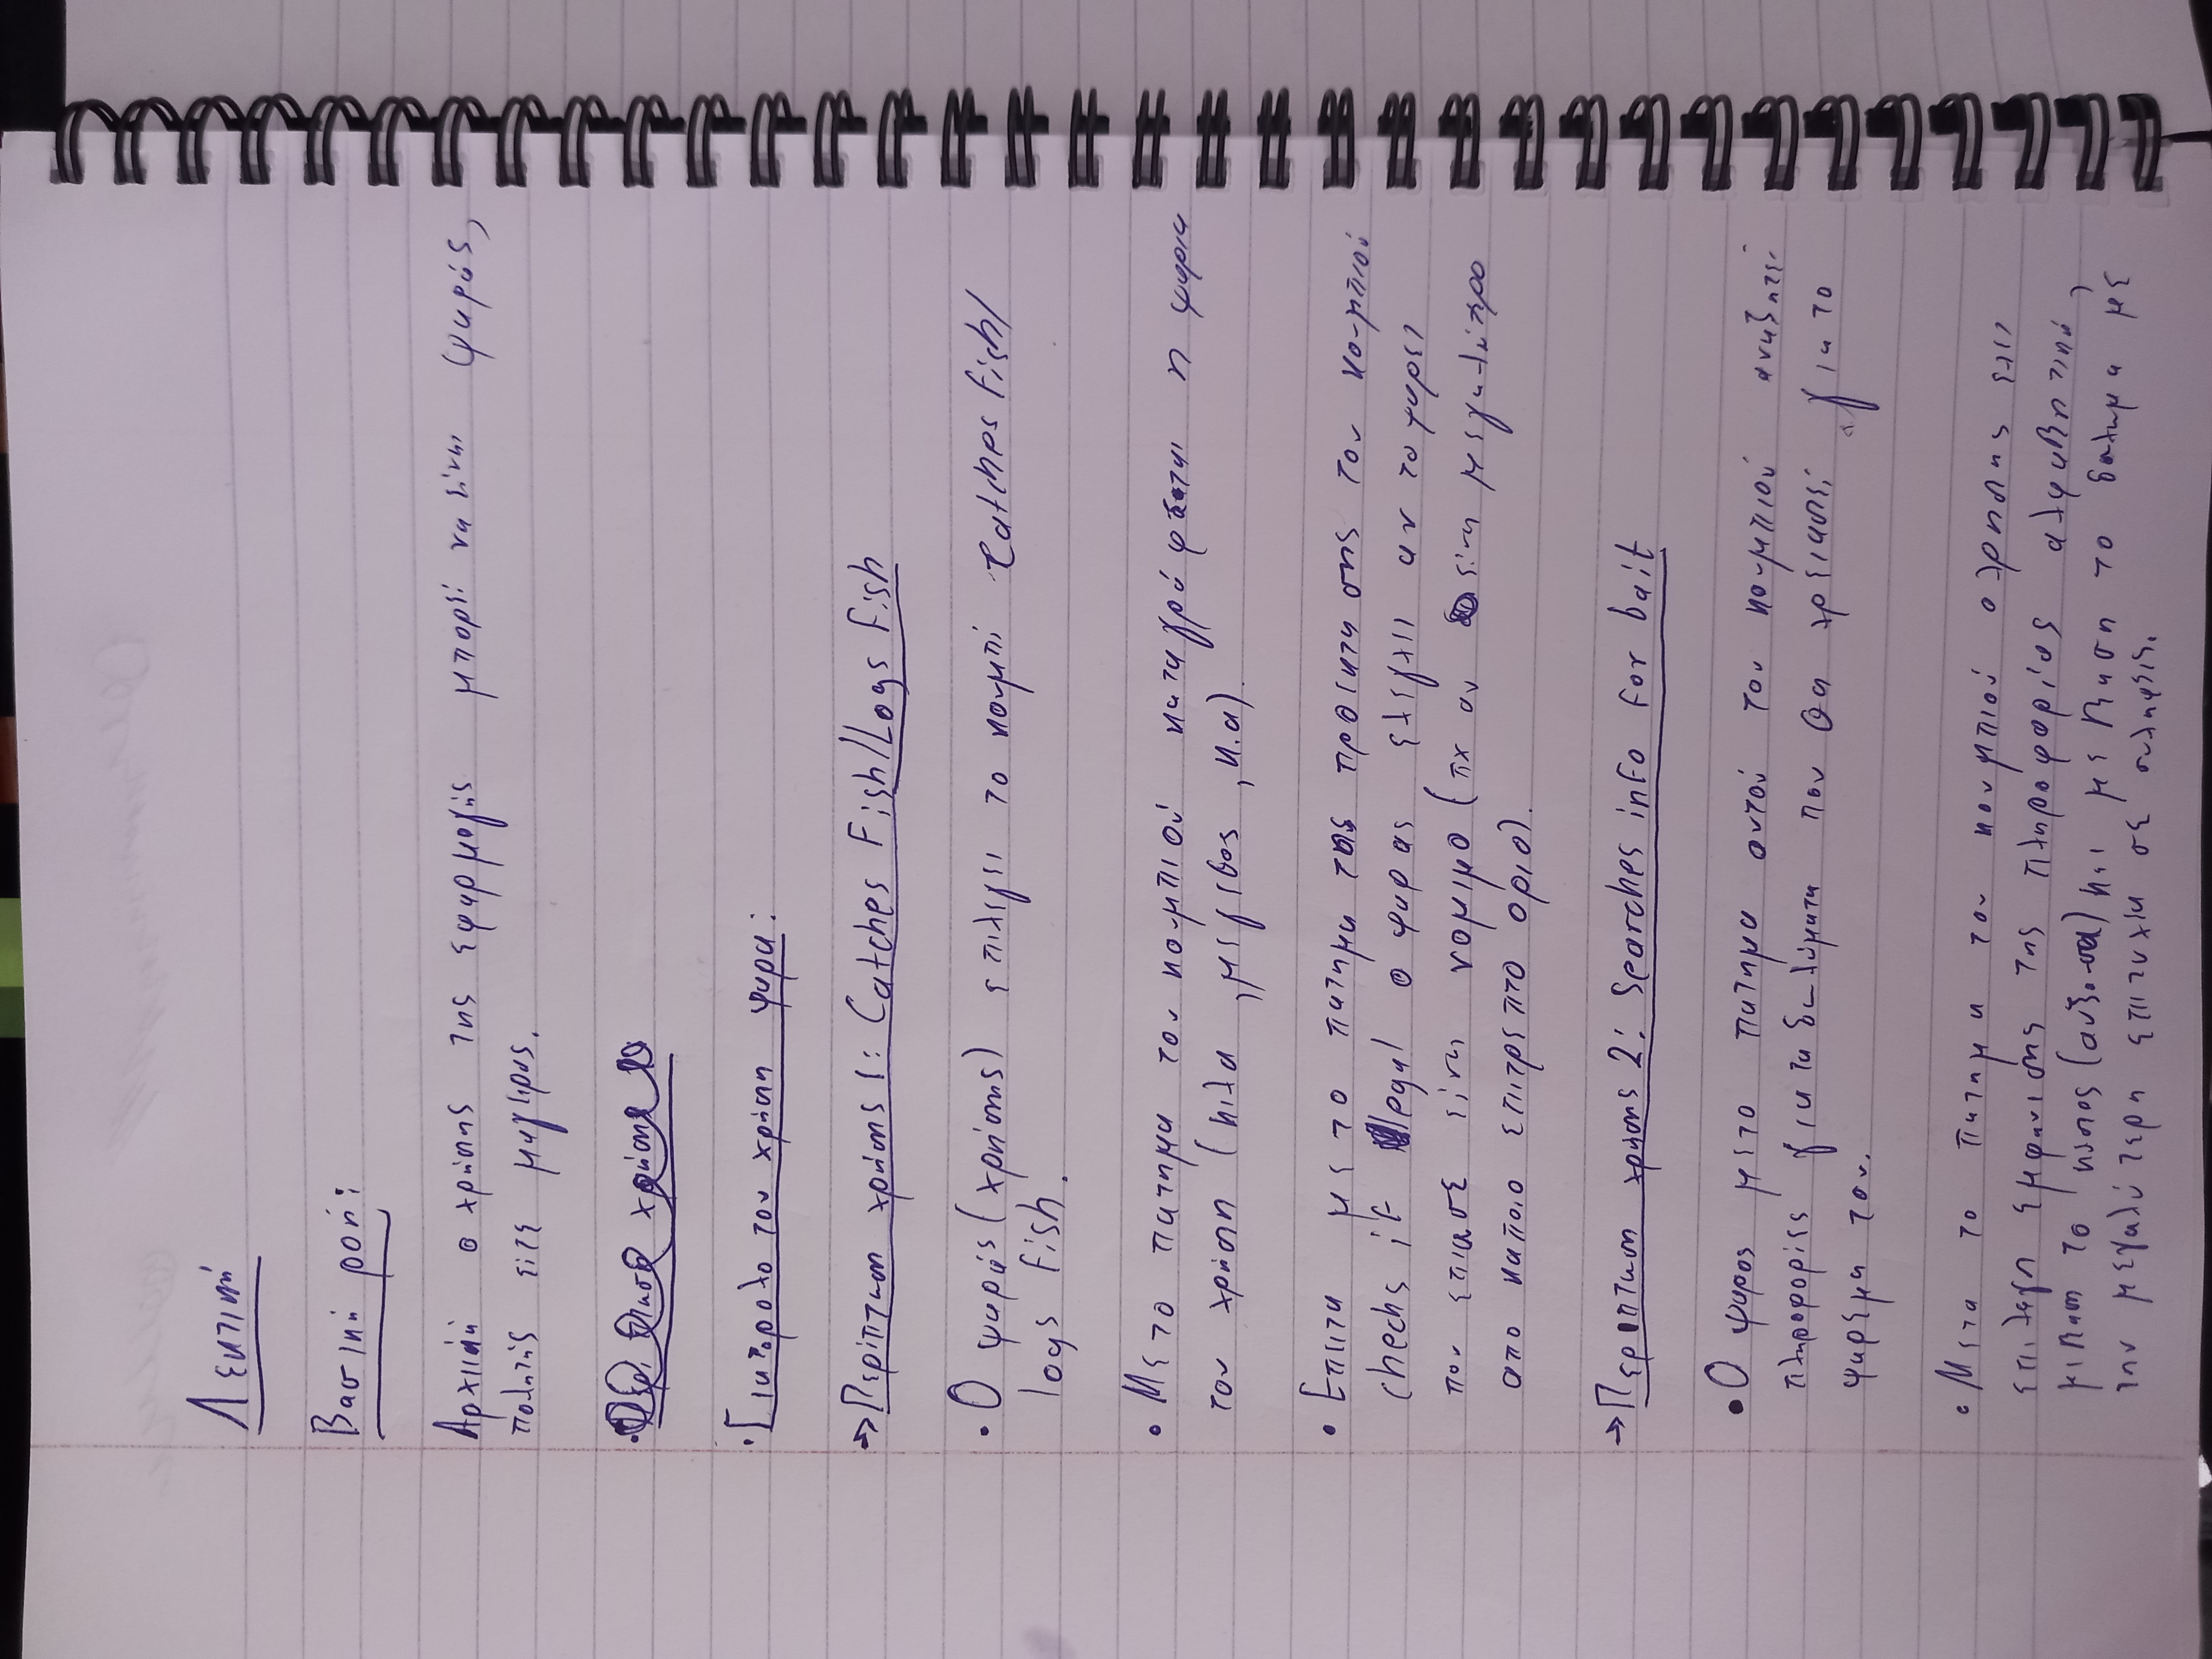 Λεκτική
Βασική ροή:
Αρχική ο χρήσης της εφαρμογής μπορεί να είναι ψαράς,
πολητής είτε μαγειρας.
• Για το ρολο του χρήση ψαρα:
→ Περίπτωση χρήσης 1: Catches Fish/Logs Fish
• Ο ψαράς (χρήσης) επιλεγει το κουμπί Catches fish/
logs fish.
• Με το πατημα του κουμπιού καταγράφεται η ψαρια
του χρήση (κιλα , μεγεθος , κ.α).
• Επειτα με το πατημα της προεκτασης του κουμπιού
checks if legal ο ψαρας ελεγχει αν το ψαρει
που επιασε είναι νομιμο (πχ αν είναι μεγαλύτερο
απο καποιο επιτρεπτο οριο).
→ Περιπτωση χρήσης 2: Searches info for bait
• Ο ψαρας με το πατημα αυτού του κουμπιού αναζητεί
πληροφορίες για τα δωλώματα που θα χρειαστεί για το
ψαρεμα του.
• Μετα το πατημα του κουμπιού ο χρησης εχει
επιλεγη εμφανισης της πληροφορίας αλφαβητική,
με βαση το κοστος (αυξουσα) και με βαση το δολωμα με
την μεγαλύτερη επιτυχια σε συληψεις.